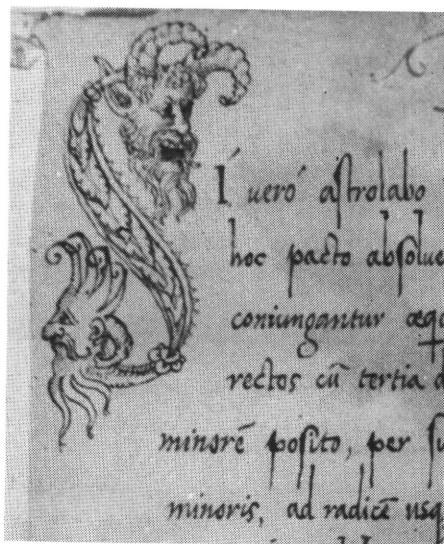 SÍ ueró astrolabo
hoc pacto absolue
coniungantur æq
rectos cū tertia
minorē posito, per su
minoris, ad radicē usq